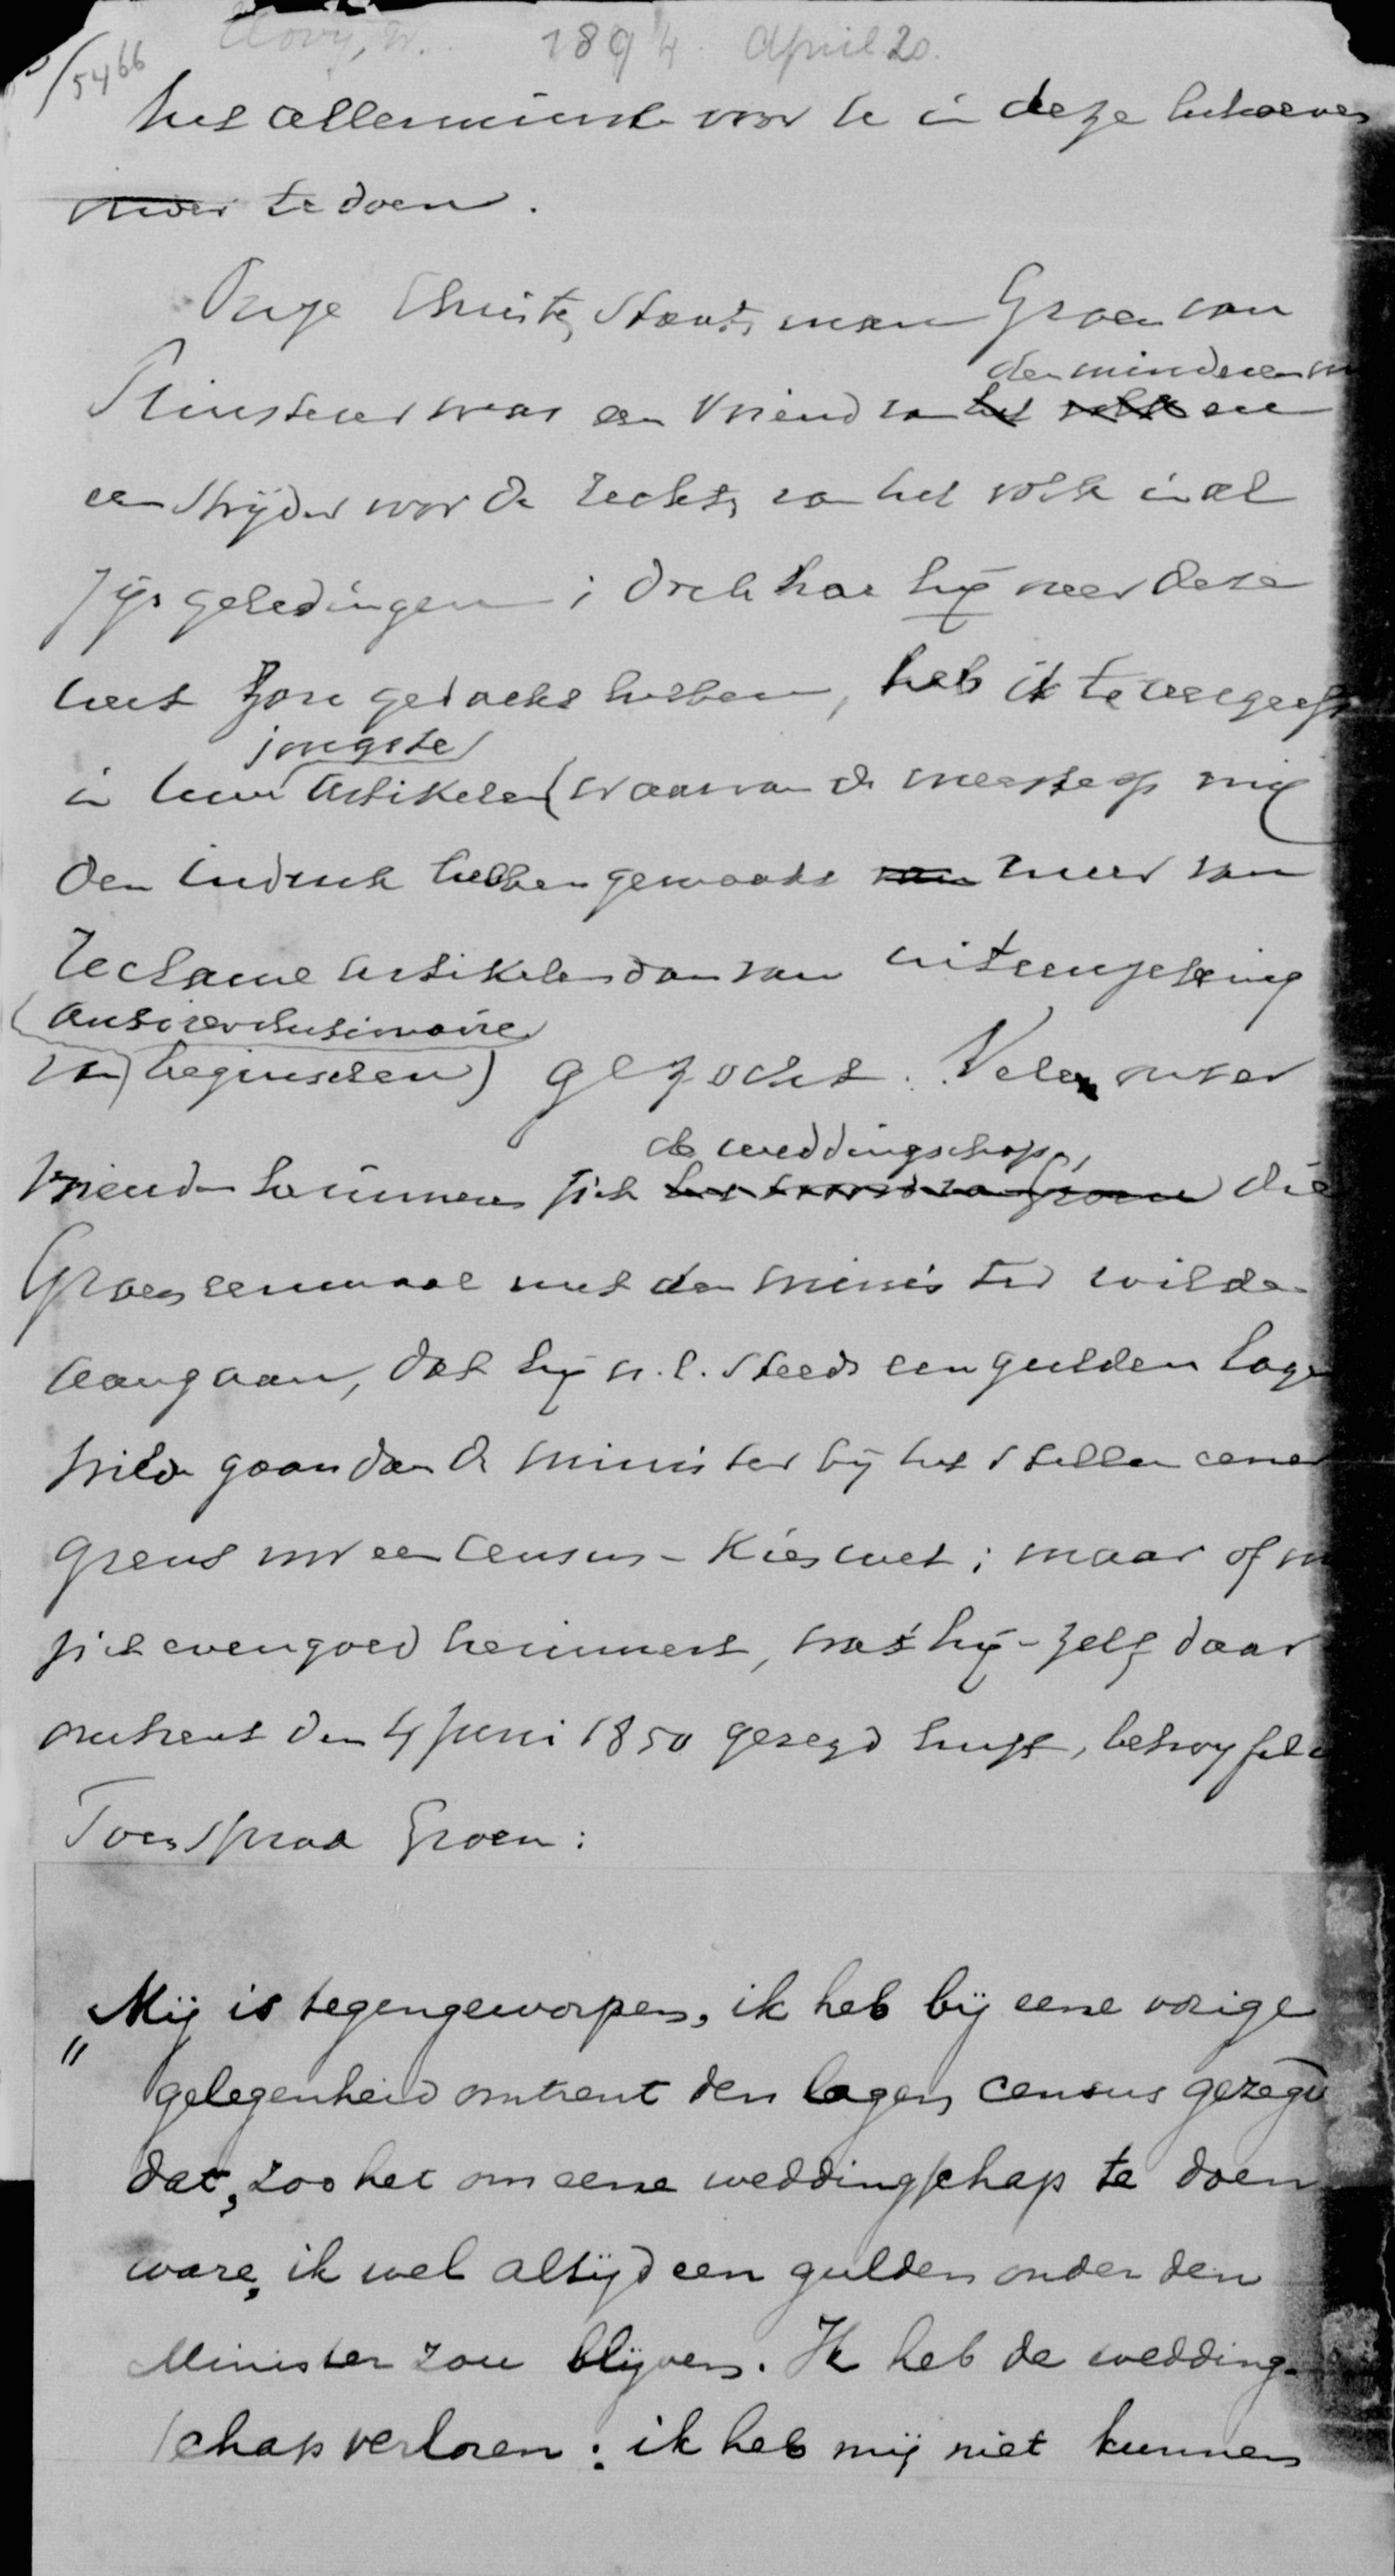 Hovy, W. 1894. April 20.
5466
het allerminst voor te in deze behoeven
over te doen.
Onze Christen Staatsman Groen van
der minderen
Prinsterer was een vriend van het volk en
een strijder voor de rechten van het volk in al
zijn geledingen; doch hoe hij over deze
wet zou gedacht hebben, heb ik te vergeefs
jongste
in uw artikelen (waarvan de meeste op mij
den indruk hebben gemaakt van meer van
reclame artikelen dan van uiteenzetting
antirevolutionaire
van beginselen) gezocht. Velen onzer
de weddingschap,
vrienden herinneren zich het woord van Groen die
Groen eenmaal met den minister wilde
aangaan, dat hij n.l. steeds een gulden lager
wilde gaan dan de minister bij het stellen eener
grens voor een census-kieswet; maar of m
zich evengoed herinnert, wat hij-zelf daar
omtrent den 4 Juni 1850 gezegd heeft, betwijfel
Toen sprak Groen:
"Mij is tegengeworpen, ik heb bij eene vorige
gelegenheid omtrent den lagen census gezegd
dat, zoo het om eene weddingschap te doen
ware, ik wel altijd een gulden onder den
Minister zou blijven. Ik heb de wedding-
schap verloren: ik heb mij niet kunnen